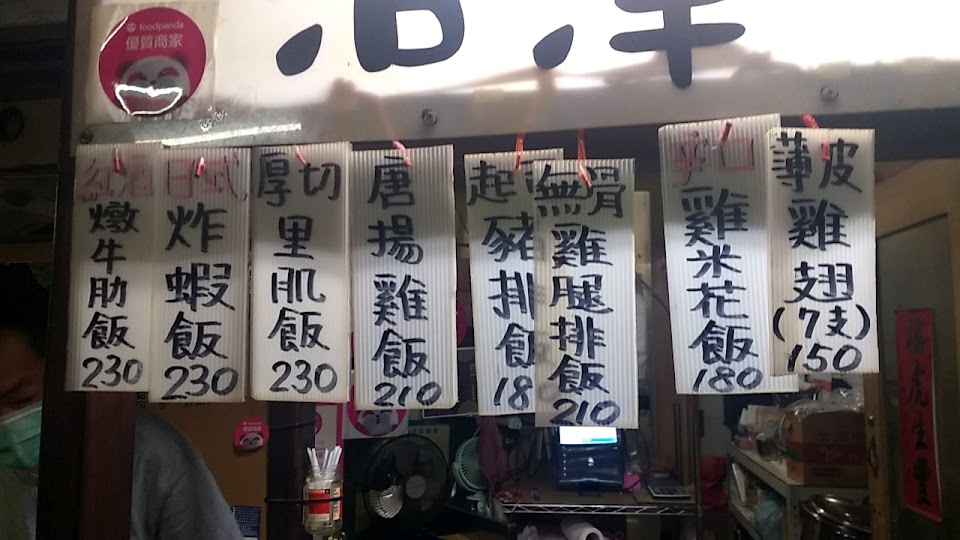 foodpanda
優質商家
紅酒
燉牛肋飯
230
日式
炸蝦飯
230
厚切
里肌飯
230
唐揚雞飯
210
豬排飯
無骨
雞腿排飯
210
爽口
雞米花飯
180
薄皮
雞翅
(7支)
150
虎生豐